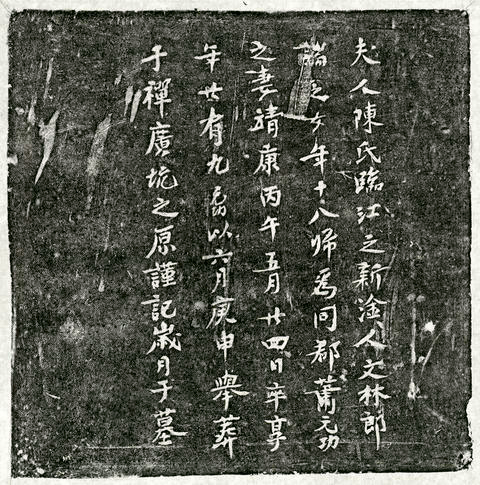 夫人陳氏臨江之新淦人文林郎
端之女年十八歸爲同郡蕭元功
之妻靖康丙午五月廿四日卒享
年廿有九以六月庚申舉葬
于禪廣坑之原謹記歲月于墓